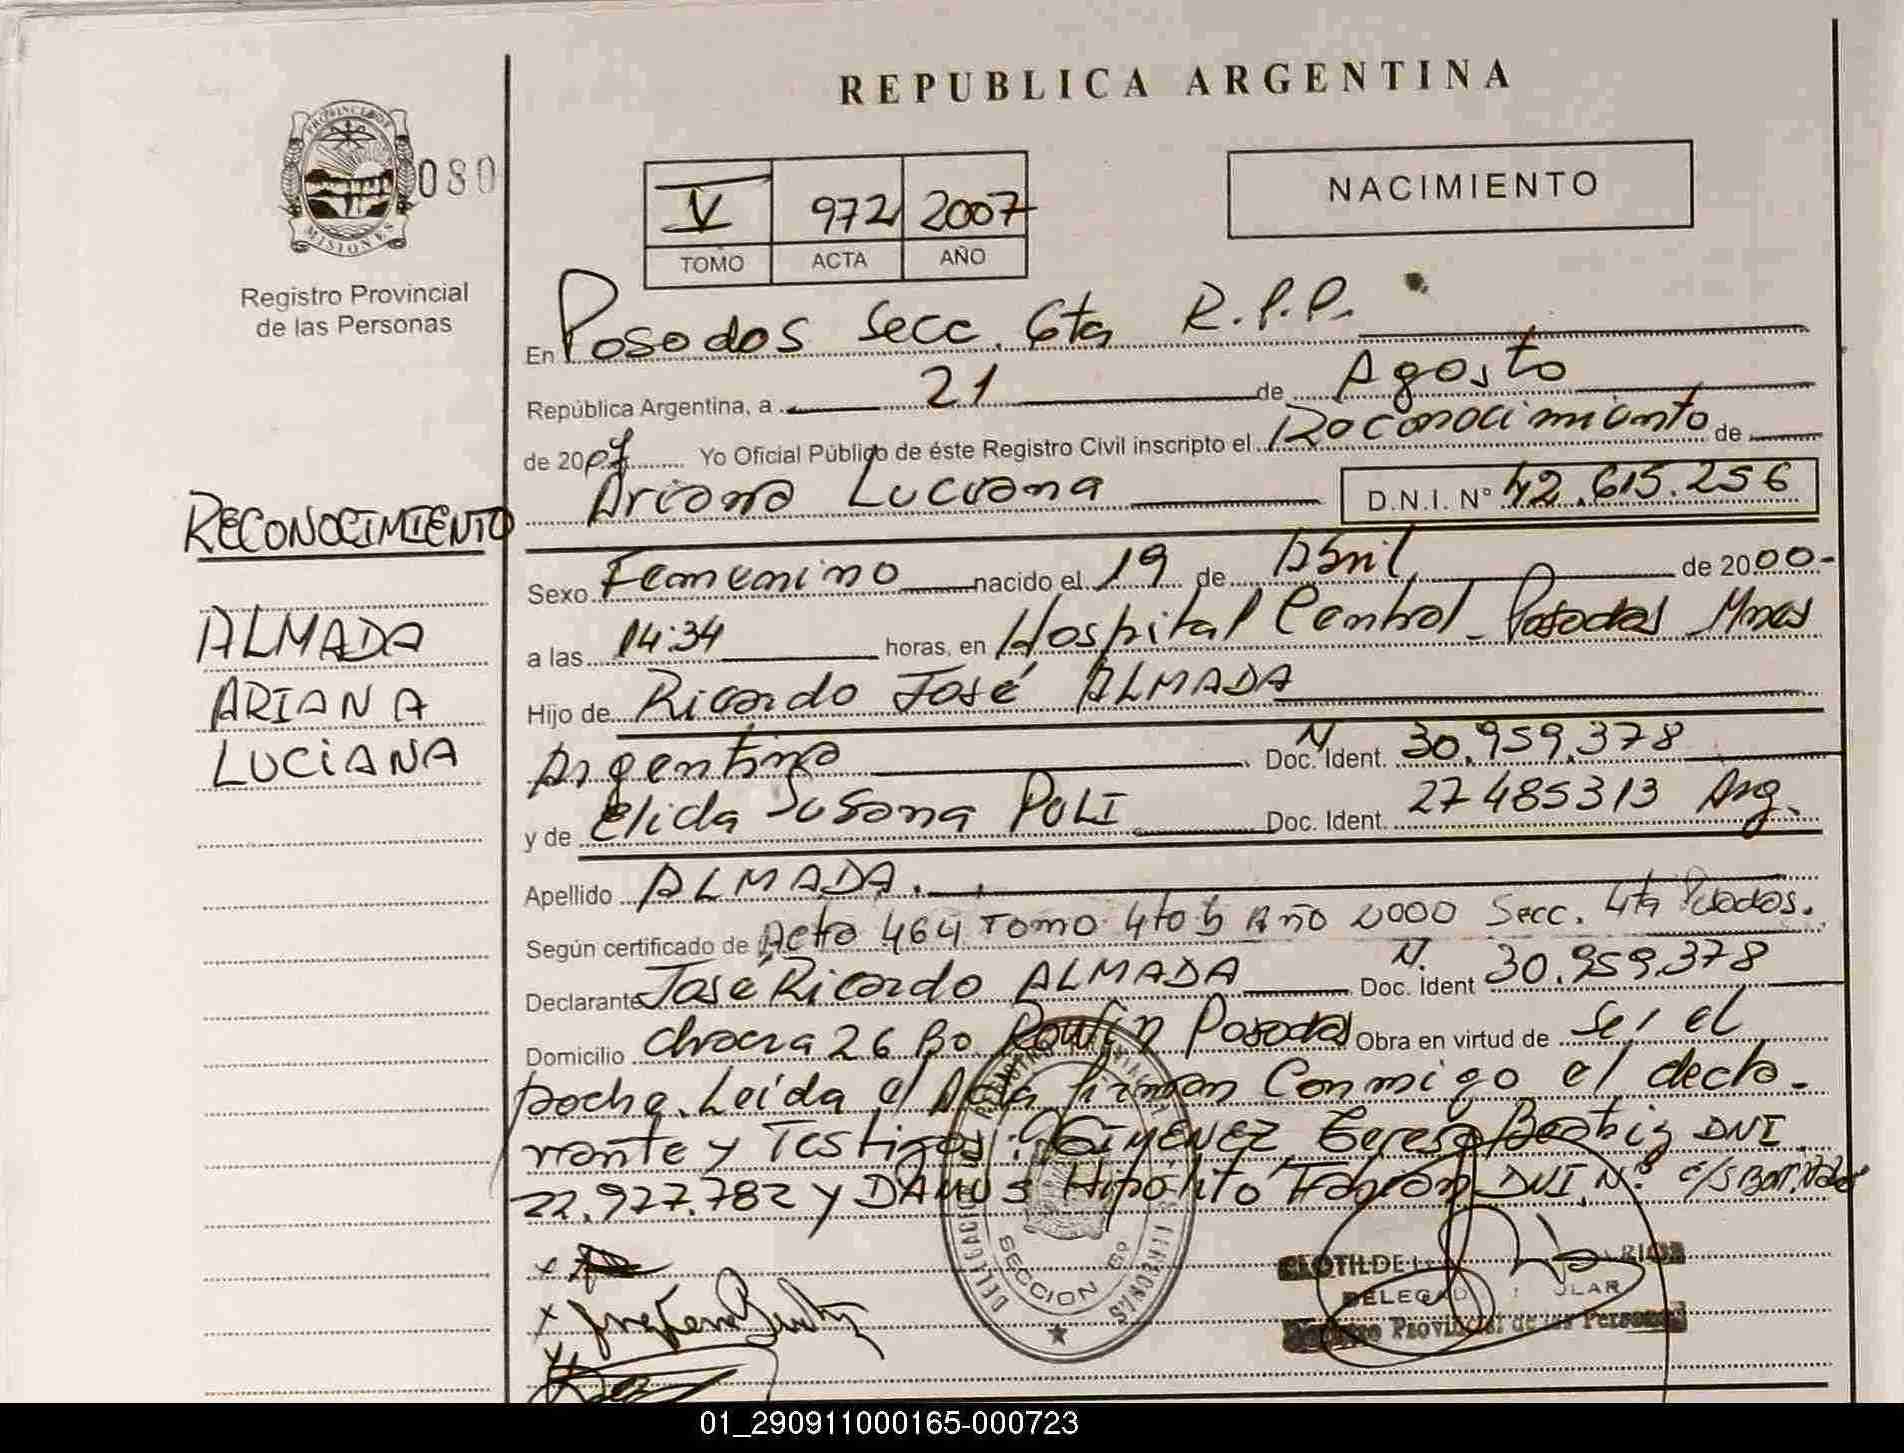 REPUBLICA ARGENTINA
PROVINCIA DE
MISIONES
080
Registro Provincial
de las Personas
V 972 2007
TOMO ACTA AÑO
NACIMIENTO
En Posadas Secc. 6ta R.P.P.
República Argentina, a 21 de Agosto
de 2007 Yo Oficial Público de éste Registro Civil inscripto el Reconocimiento de
RECONOCIMIENTO
Ariana Luciana D.N.I. N° 42.615.256
Sexo Femenino nacido el 19 de Abril de 2000-
ALMADA
a las 14:34 horas, en Hospital Central - Posadas Mnes
ARIANA
Hijo de Ricardo José ALMADA
LUCIANA
Argentino Doc. Ident. N 30.959.378
y de Elida Susana POLI Doc. Ident. 27485313 Arg.
Apellido ALMADA.
Según certificado de Acta 464 Tomo 4to Año 2000 Secc. 4ta Posadas.
Declarante José Ricardo ALMADA Doc. Ident N. 30.959.378
Domicilio chacra 26 Bo Posadas Obra en virtud de Ser el
padre. Leída el Acta firman Conmigo el decla-
rante y Testigos: GIMENEZ, Teresa Beatriz DNI
22.927.782 y DAMUS Hipólito Fabián DNI.N°
SECCION 6°
CLOTILDE
DELEGAD TITULAR
Registro Provincial de las Personas
01_290911000165-000723